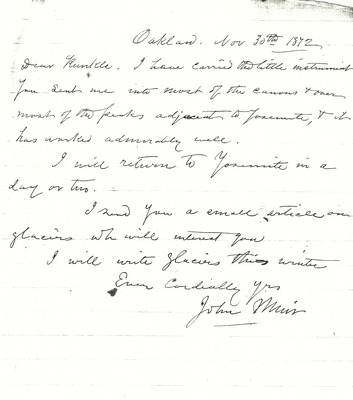 Oakland. Nov 30th 1872
Dear Runkle. I have carried the little instrument
you sent me into most of the canons & over
most of the peaks adjacent to Yosemite, & it
has worked admirably well.
I will return to Yosemite in a
day or two.
I send you a small article on
glaciers wh will interest you
I will write glaciers this winter
Ever Cordially yrs
John Muir